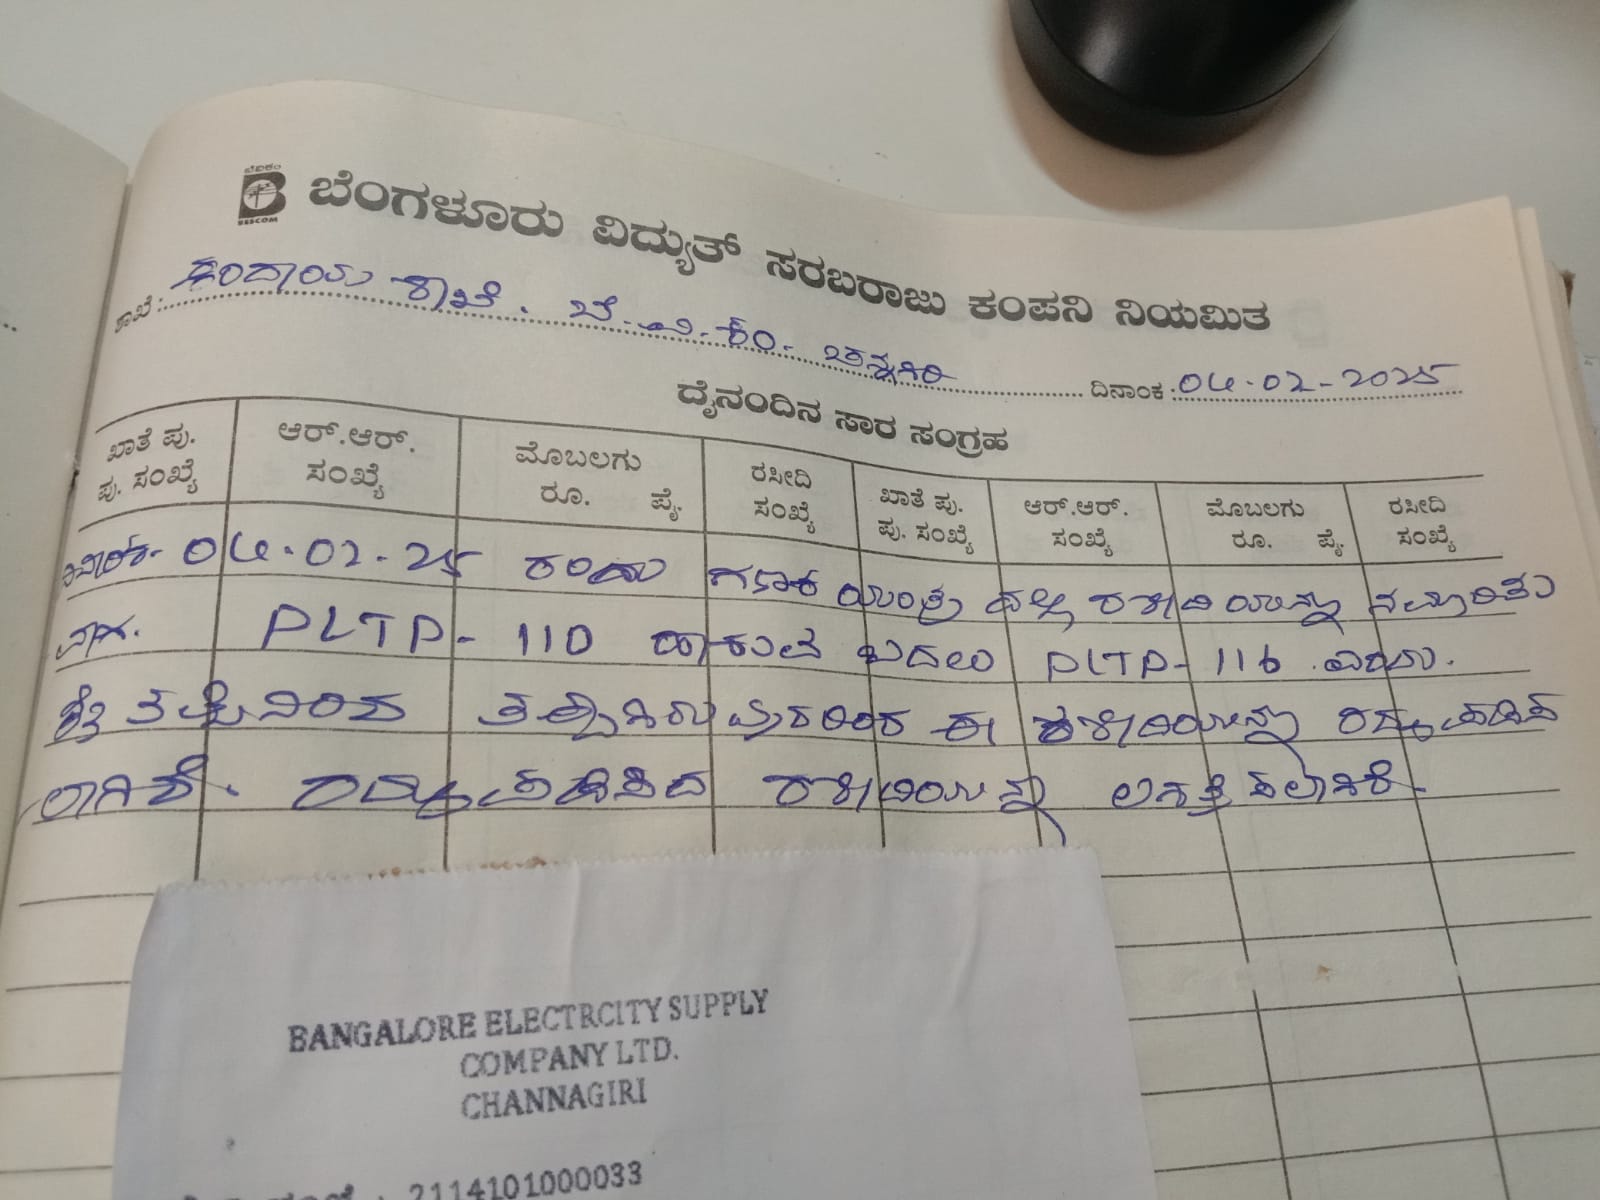 ಬೆವಿಕಂ
BESCOM
ಬೆಂಗಳೂರು ವಿದ್ಯುತ್ ಸರಬರಾಜು ಕಂಪನಿ ನಿಯಮಿತ
ಶಾಖೆ : ಕಂದಾಯ ಶಾಖೆ. ಬೆ.ವಿ.ಕಂ. ಚನ್ನಗಿರಿ ದಿನಾಂಕ : 04-02-2025
ದೈನಂದಿನ ಸಾರ ಸಂಗ್ರಹ
ಖಾತೆ ಪು. ಪು. ಸಂಖ್ಯೆ
ಆರ್.ಆರ್. ಸಂಖ್ಯೆ
ಮೊಬಲಗು ರೂ. ಪೈ.
ರಸೀದಿ ಸಂಖ್ಯೆ
ಖಾತೆ ಪು. ಪು. ಸಂಖ್ಯೆ
ಆರ್.ಆರ್. ಸಂಖ್ಯೆ
ಮೊಬಲಗು ರೂ. ಪೈ.
ರಸೀದಿ ಸಂಖ್ಯೆ
04-02-25 ರಂದು ಗಣಕ ಯಂತ್ರ ದಲ್ಲಿ ರಶೀದಿಯನ್ನು
PLTP-110 ಹಾಕುವ ಬದಲು PLTP-116 ಎಂದು.
ಈ ರಶೀದಿಯನ್ನು ರದ್ದುಪಡಿಸ
ಲಾಗಿದೆ. ರದ್ದುಪಡಿಸಿದ ರಶೀದಿಯನ್ನು ಲಗತ್ತಿಸಲಾಗಿದೆ.
BANGALORE ELECTRCITY SUPPLY
COMPANY LTD.
CHANNAGIRI
: 2114101000033